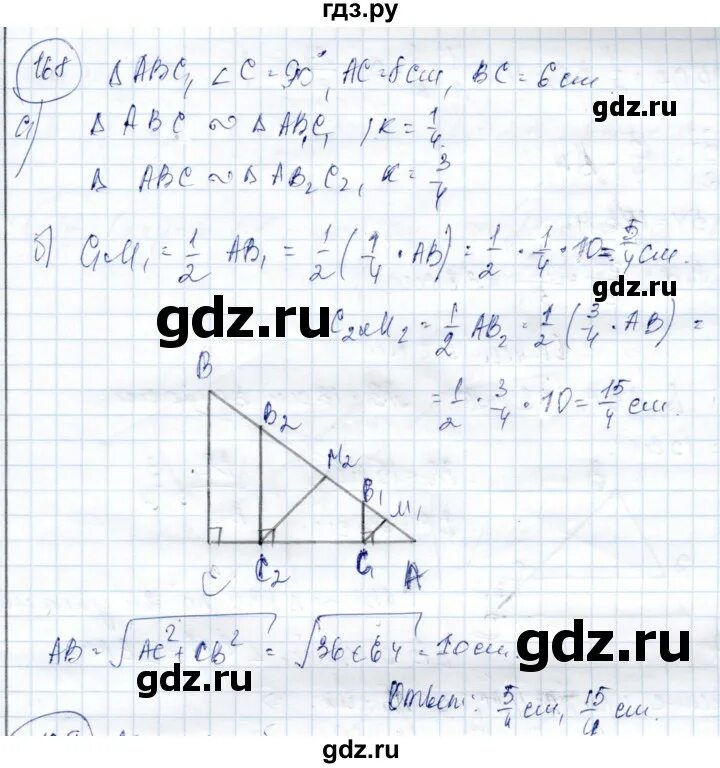 гдз.ру
168 Δ ABC, ∠C = 90°, AC = 8 см, BC = 6 см.
gdz.ru
a) Δ ABC ∾ Δ AB₁C₁, k = 1/4.
Δ ABC ∾ Δ AB₂C₂, k = 3/4
gdz.ru
б) C₁M₁ = 1/2 AB₁ = 1/2 (1/4 · AB) = 1/2 · 1/4 · 10 = 5/4 см.
gdz.ru
C₂M₂ = 1/2 AB₂ = 1/2 (3/4 · AB) =
= 1/2 · 3/4 · 10 = 15/4 см.
B
B₂
M₂
B₁
M₁
C C₂ C₁ A
AB = √AC² + CB² = √36 + 64 = 10 см.
gdz.ru
gdz.ru
Ответ: 5/4 см, 15/4 см.
gdz.ru